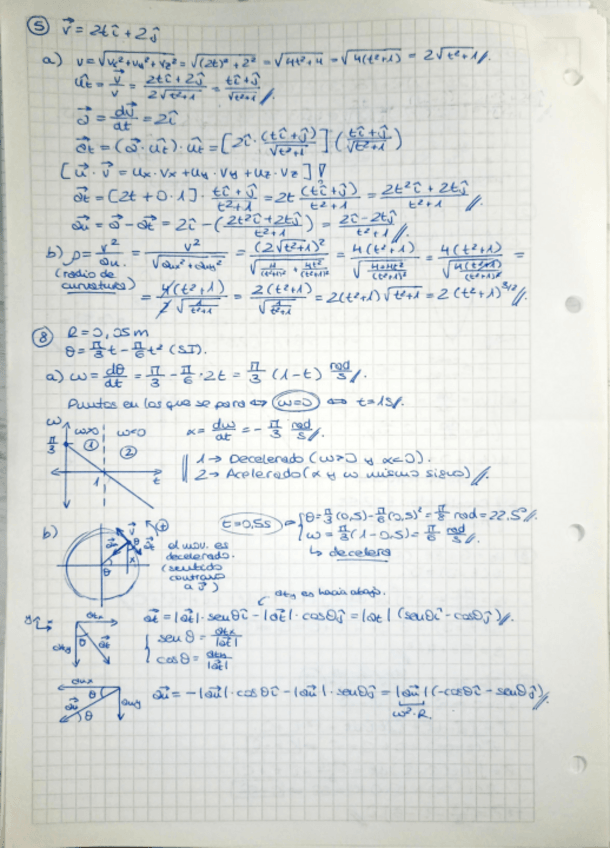 ⑤ v⃗ = 2t î + 2 ĵ
a) v = √(vx² + vy² + vz²) = √((2t)² + 2²) = √(4t² + 4) = √(4(t²+1)) = 2√(t²+1) //.
û_t = v⃗/v = (2t î + 2 ĵ)/(2√(t²+1)) = (t î + ĵ)/√(t²+1) //.
a⃗ = dv⃗/dt = 2 î
a⃗t = (a⃗ · û_t) · û_t = [2 î · (t î + ĵ)/√(t²+1)] ((t î + ĵ)/√(t²+1))
[u⃗ · v⃗ = ux · vx + uy · vy + uz · vz] ∇
a⃗t = [2t + 0 · 1] · (t î + ĵ)/(t²+1) = 2t (t î + ĵ)/(t²+1) = (2t² î + 2t ĵ)/(t²+1) //.
a⃗n = a⃗ - a⃗t = 2 î - ((2t² î + 2t ĵ)/(t²+1)) = (2 î - 2t ĵ)/(t²+1) //.
b) ρ = v²/an = v²/√(anx² + any²) = (2√(t²+1))²/√(4/(t²+1)² + 4t²/(t²+1)²) = 4(t²+1)/√((4+4t²)/(t²+1)²) = 4(t²+1)/√(4(t²+1)/(t²+1)²) =
(radio de curvatura)
= 4(t²+1)/(2√(1/(t²+1))) = 2(t²+1)/√(1/(t²+1)) = 2(t²+1)√(t²+1) = 2(t²+1)^3/2 //.
⑧ R = 0,05 m
θ = π/3 t - π/6 t² (SI).
a) ω = dθ/dt = π/3 - π/6 · 2t = π/3 (1 - t) rad/s //.
Puntos en los que se para ⇔ (ω=0) ⇔ t = 1s //.
ω
π/3
ω>0 ①
ω<0 ②
1
t
α = dω/dt = - π/3 rad/s //.
1 → Decelerado (ω>0 y α<0).
2 → Acelerado (α y ω mismo signo) //.
b)
v⃗
θ
a⃗n
a⃗t
α
θ
(+)
el mov. es decelerado. (sentido contrario a v⃗)
t = 0,5s
θ = π/3 (0,5) - π/6 (0,5)² = π/8 rad = 22,5° //.
ω = π/3 (1 - 0,5) = π/6 rad/s //.
↳ decelera
aty es hacia abajo.
y x
atx
aty
θ
a⃗t
a⃗t = |a⃗t| · senθ î - |a⃗t| · cosθ ĵ = |at| (senθ î - cosθ ĵ) //.
senθ = atx/|a⃗t|
cosθ = aty/|a⃗t|
anx
θ
a⃗n
θ
any
a⃗n = -|a⃗n| · cosθ î - |a⃗n| · senθ ĵ = |a⃗n| (-cosθ î - senθ ĵ) //.
ω² · R.